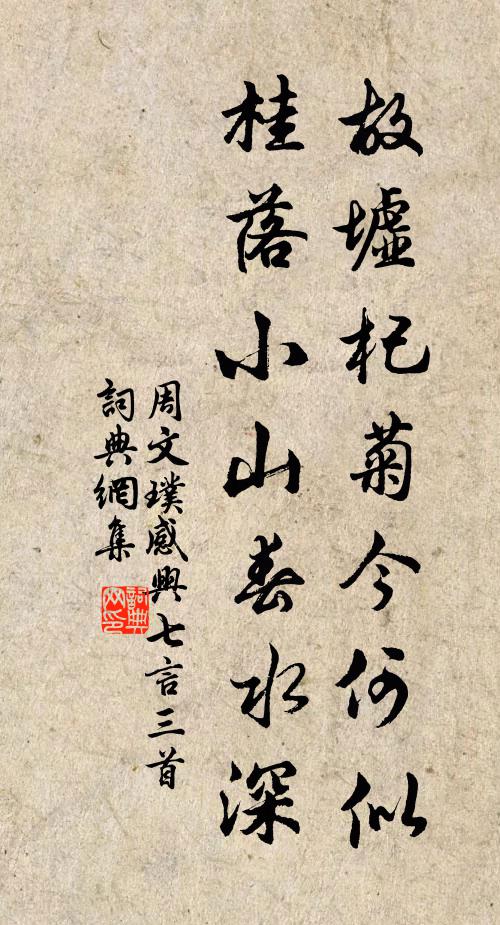 故墟杞菊今何似
桂落小山春水深
周文璞感興七言三首
詞典網集
詞典网印